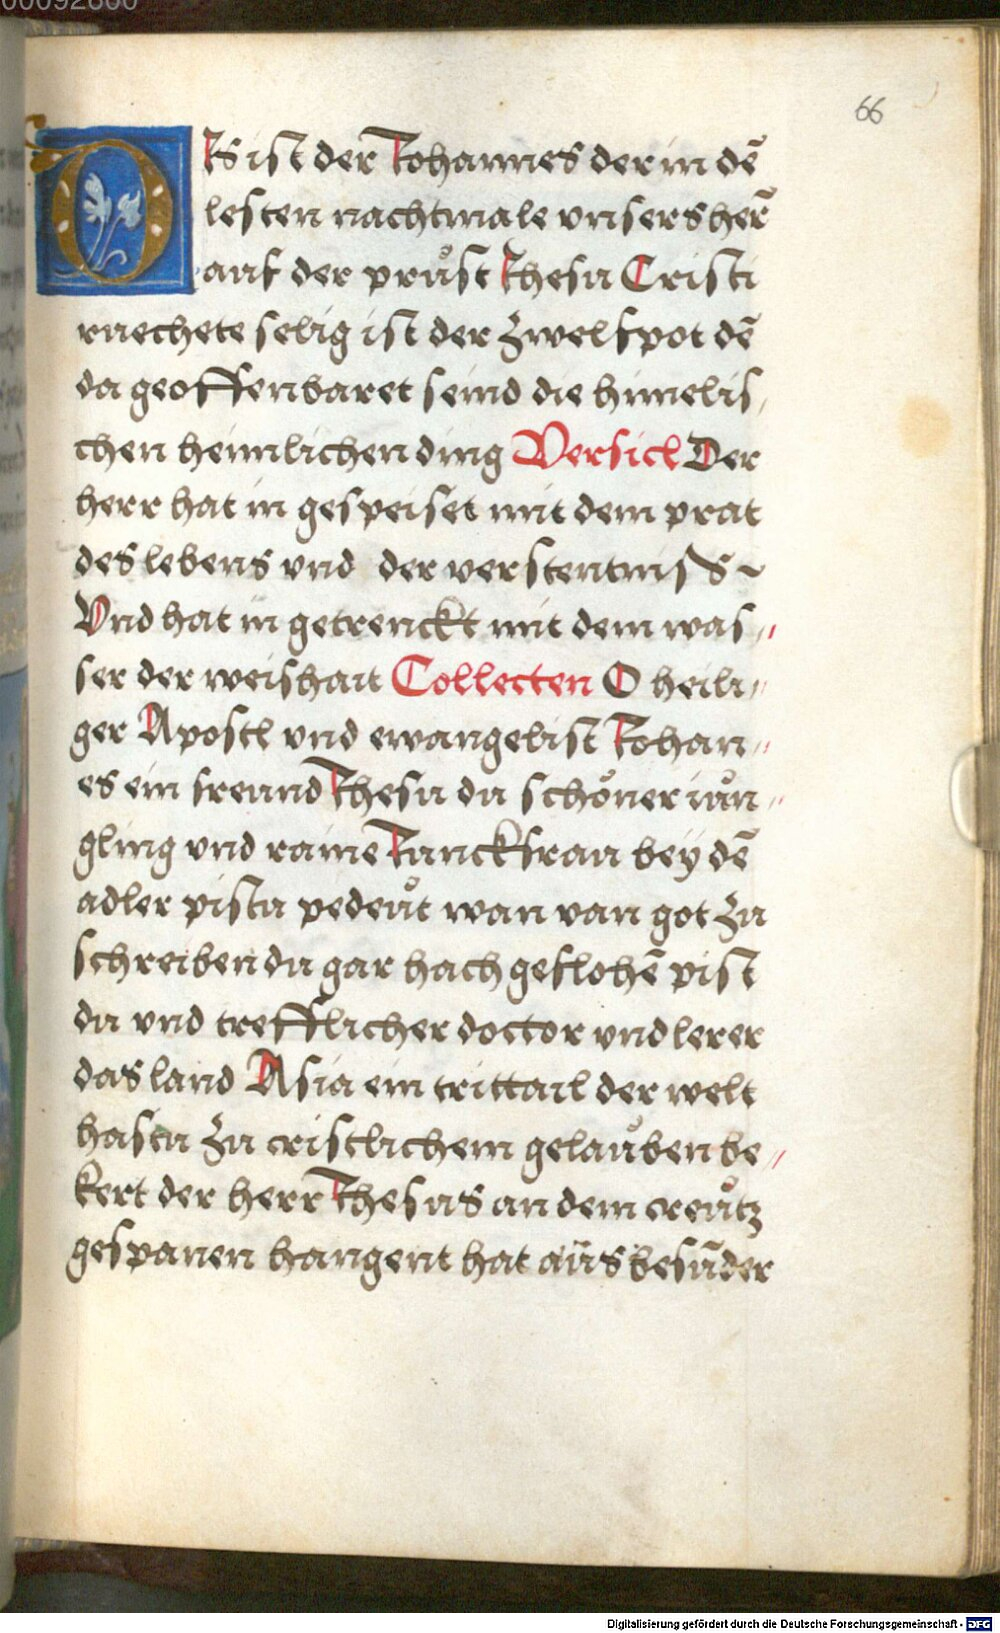 00092600
66
DIS ist der Johannes der in dē
lesten nachtmale vnsers her̄
auf der průst Jhesu Cristi
ruechete selig ist der zwelfpot dē
da geoffenbaret seind die himelis
chen heimlichen ding Versicl Der
herr hat in gespeiset mit dem prat
des lebens vnd der verstentniss ~
Vnd hat in getrenckt mit dem was〃
ser der weishait Collecten O heili〃
ger Apostl vnd ewangelist Johan〃
es ein freund Jhesu du schöner iůn〃
gling vnd raine Junckfrau bey dē
adler pistu pedeůt wan van got zu
schreiben du gar hach geflohē pist
du vnd trefflicher doctor vnd lerer
das land Asia ein trittail der welt
hastu zu cristlichem gelaůben be〃
kert der herr Jhesus an dem creůtz
gespanen hangent hat aüs besūder
Digitalisierung gefördert durch die Deutsche Forschungsgemeinschaft - DFG